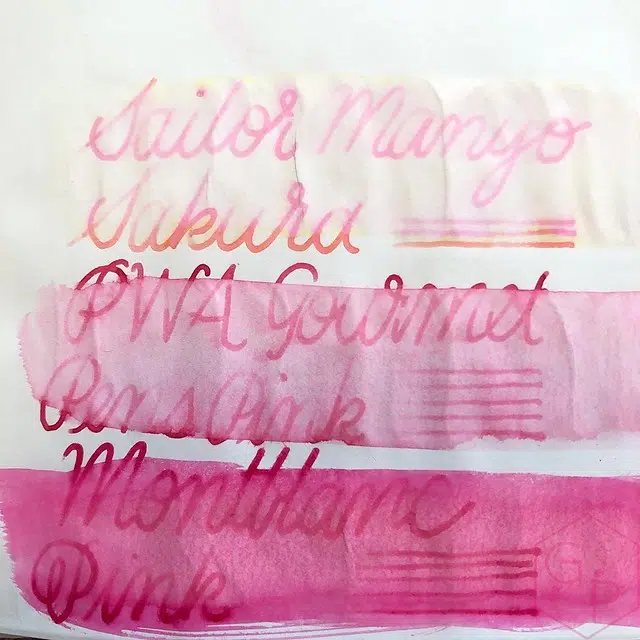 Sailor Manyo
Sakura
PWA Gourmet
Pens Pink
Montblanc
Pink
GP